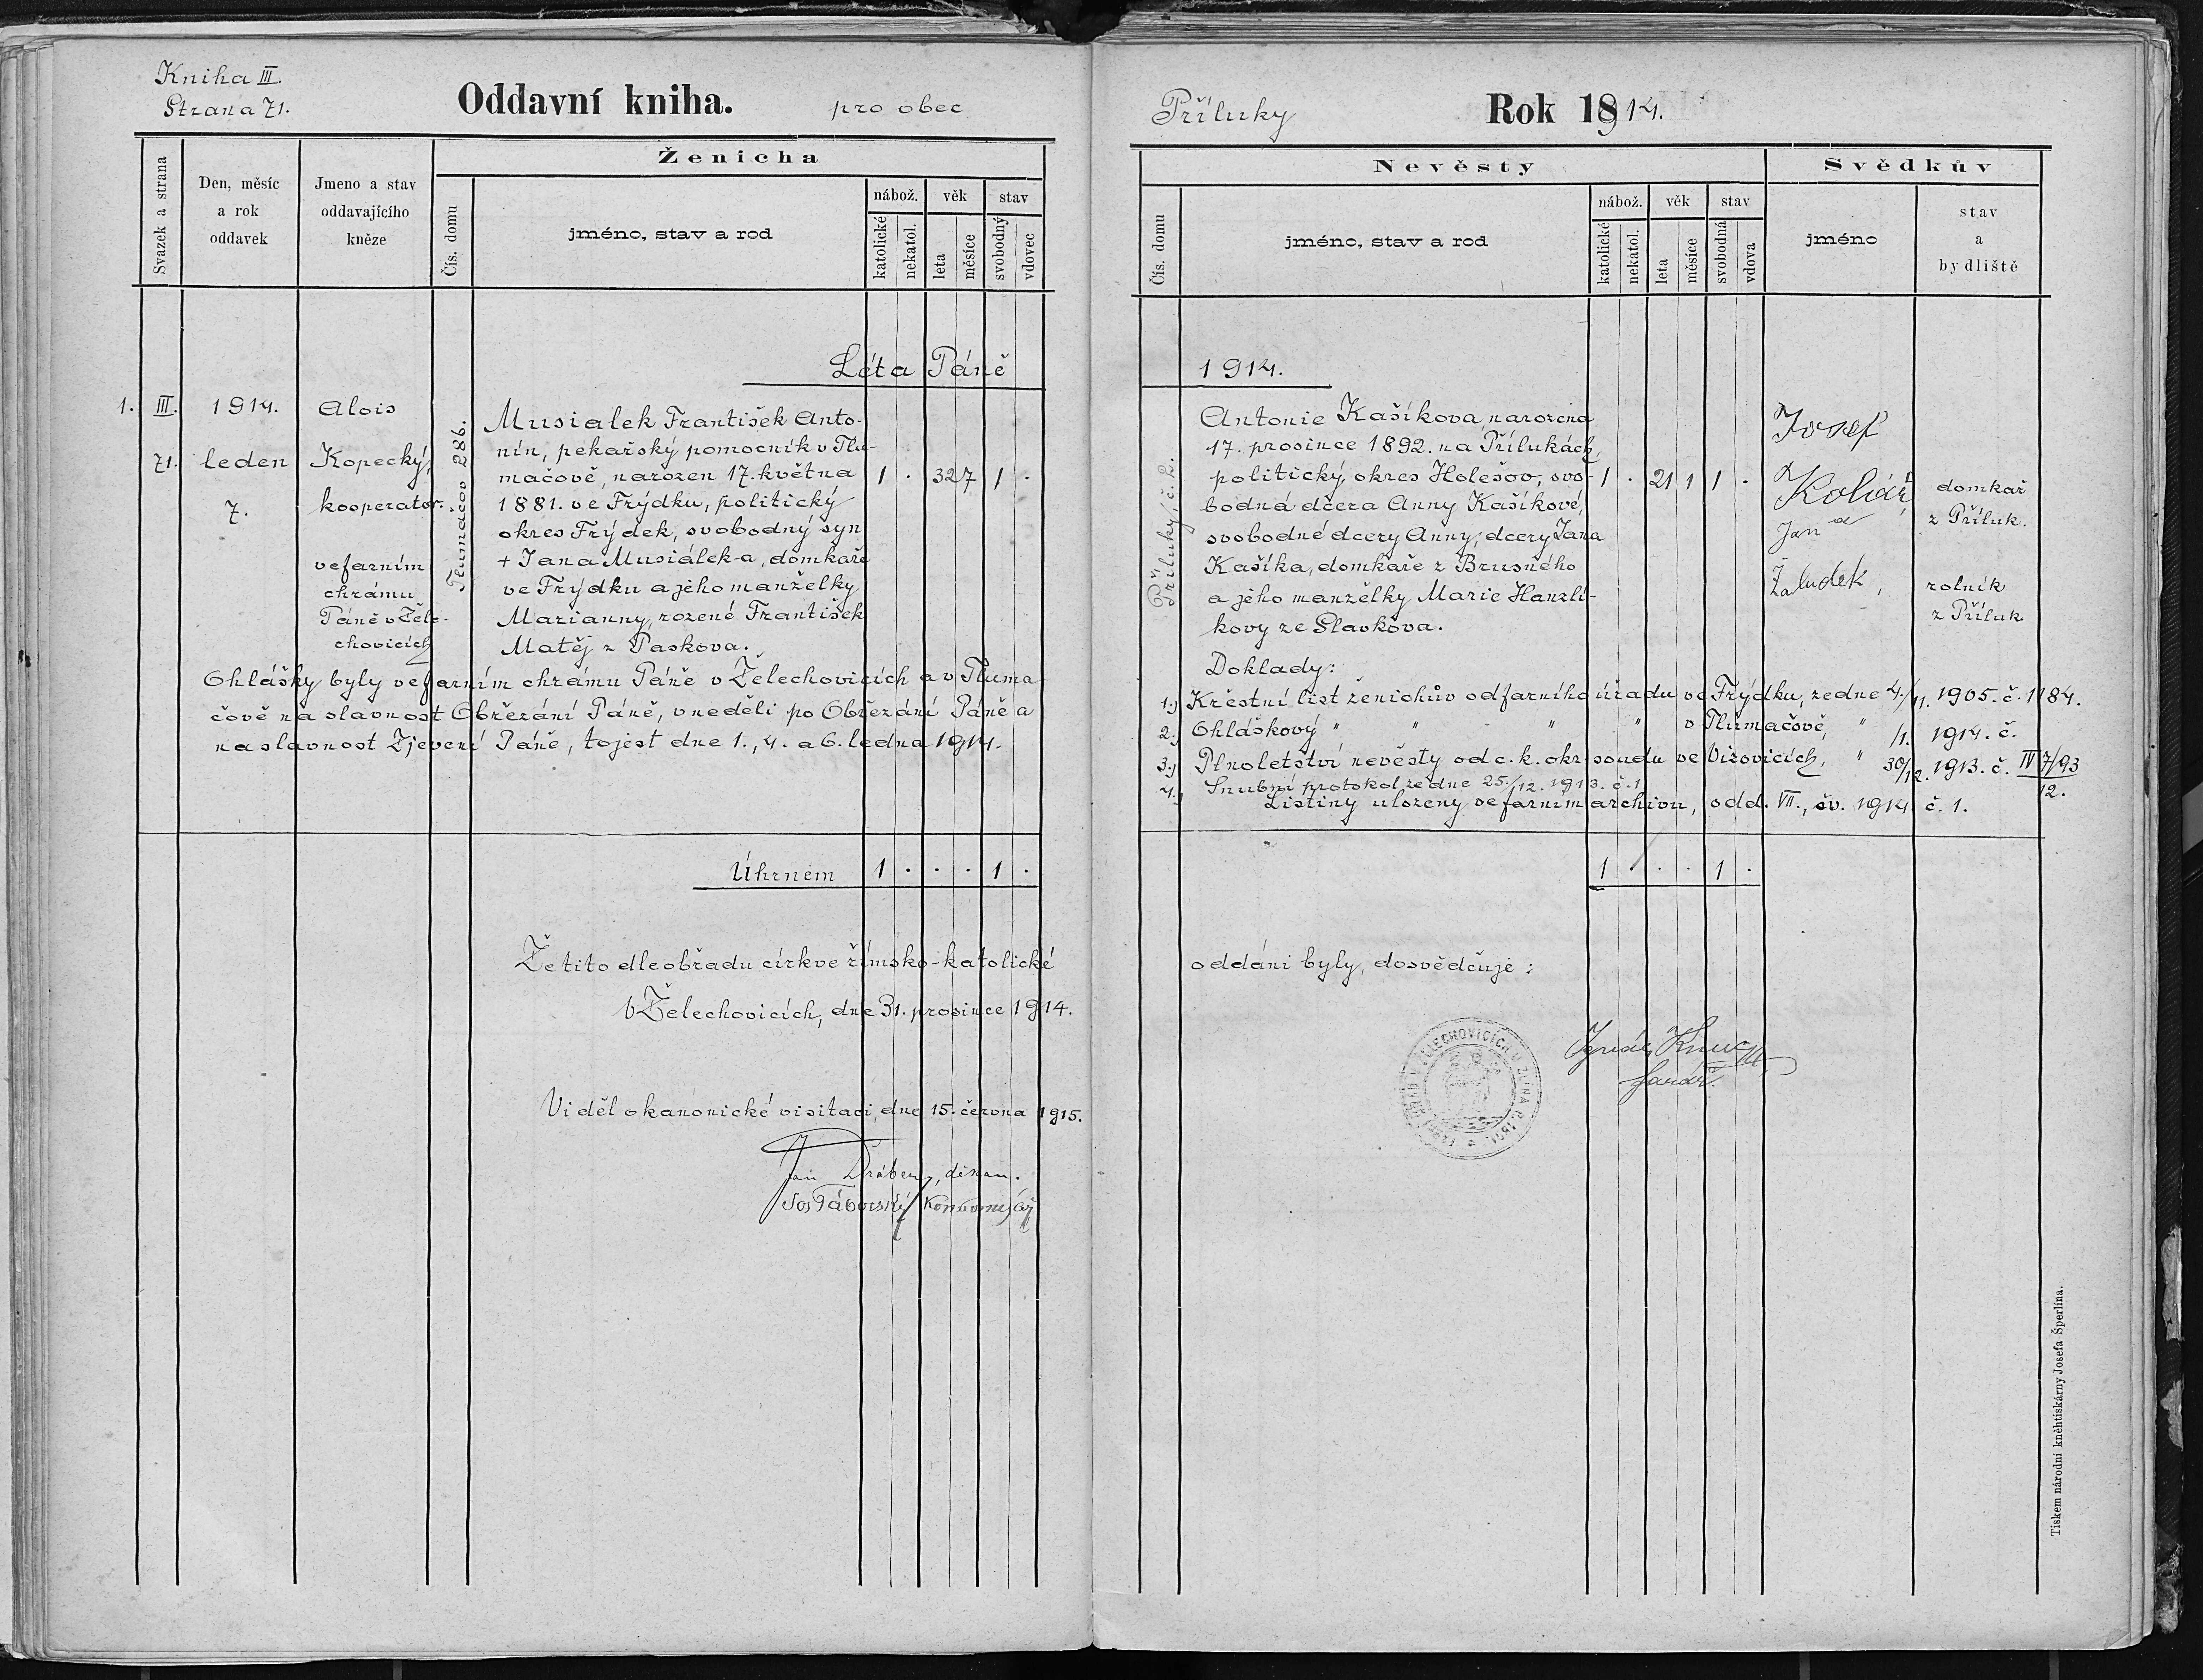 Kniha III.
Strana 71.
Oddavní kniha. pro obec
Svazek a strana
Den, měsíc
a rok
oddavek
Jmeno a stav
oddavajícího
kněze
Ženicha
Čís. domu
jméno, stav a rod
nábož.
věk
stav
katolické
nekatol.
leta
měsíce
svobodný
vdovec
Léta Páně
1. III. 1914.
71. leden
7.
Alois
Kopecký,
kooperator.
ve farním
chrámu
Páně v Žele-
chovicích
Tlumačov 286.
Musialek František Anto-
nín, pekařský pomocník v Tlu-
mačově, narozen 17. května
1881. ve Frýdku, politický
okres Frýdek, svobodný syn
+ Jana Musiálek-a, domkaře
ve Frýdku a jeho manželky
Marianny, rozené František
Matěj z Paskova.
1 . 32 7 1 .
Ohlášky byly ve farním chrámu Páně v Želechovicích a v Tluma
čově na slavnost Obřezání Páně, v neděli po Obřezání Páně a
na slavnost Zjevení Páně, to jest dne 1., 4. a 6. ledna 1914.
Úhrnem 1 . . . 1 .
Že tito dle obřadu církve římsko-katolické
V Želechovicích, dne 31. prosince 1914.
Viděl o kanonické visitaci, dne 15. června 1915.
Jan Drábek, děkan.
Jos Táborský
Příluky
Rok 1914.
Nevěsty
Svědkův
Čís. domu
jméno, stav a rod
nábož.
věk
stav
katolické
nekatol.
leta
měsíce
svobodná
vdova
jméno
stav
a
bydliště
1914.
Příluky, č. 2.
Antonie Kašíkova, narozena
17. prosince 1892. na Přílukách,
politický okres Holešov, svo-
bodná dčera Anny Kašíkové,
svobodné dcery Anny, dcery Jana
Kašíka, domkaře z Brusného
a jeho manželky Marie Hanzlí-
kovy ze Slavkova.
1 . 21 1 1 .
Josef
Kolář,
a
Jan
Žaludek,
domkař
z Příluk.
rolník
z Příluk.
Doklady:
1.) Křestní list ženichův od farního úřadu ve Frýdku, ze dne 4./11. 1905. č. 1184.
2.) Ohláškový " " " " v Tlumačově, " /1. 1914. č.
3.) Plnoletství nevěsty od c. k. okr. soudu ve Vizovicích, " 30/12. 1913. č. IV 7/93
12.
4.) Snubní protokol ze dne 25./12. 1913. č. 1
Listiny uloženy ve farním archivu, odd. VII., sv. 1914. č. 1.
1 . . . 1 .
oddáni byly, dosvědčuje:
Ignác
farář.
Tiskem národní kněhtiskárny Josefa Šperlína.